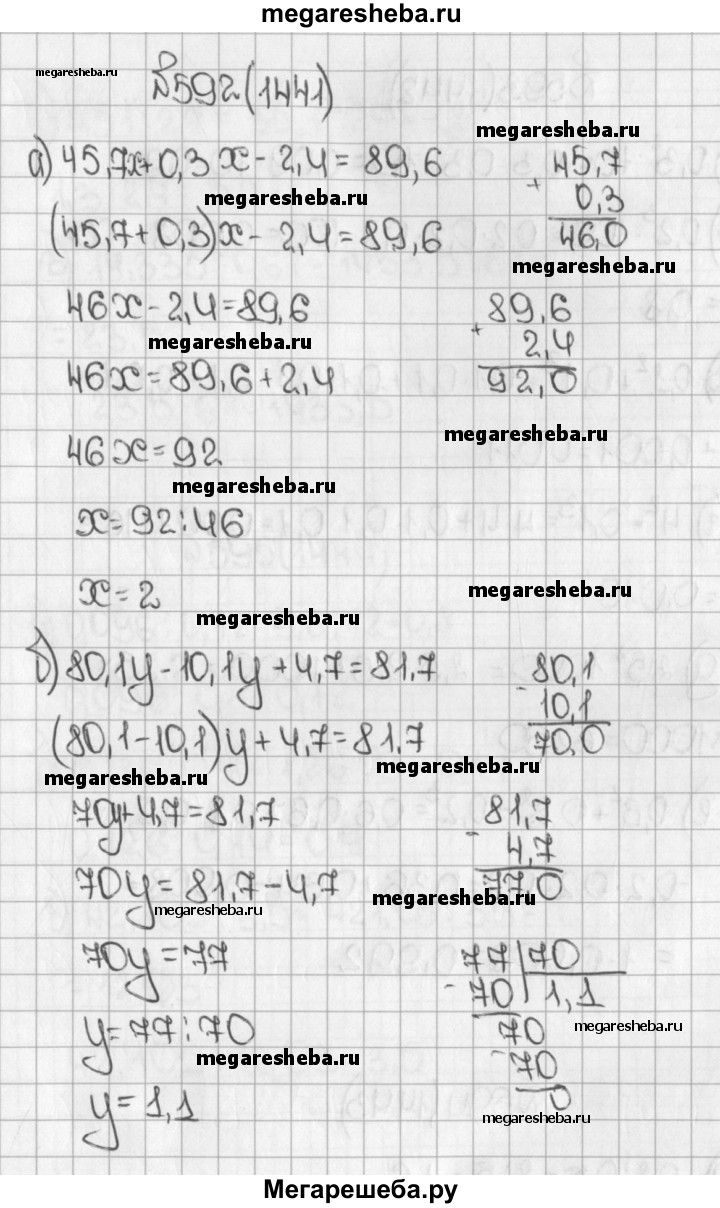 megaresheba.ru
megaresheba.ru
№592(1441)
megaresheba.ru
а) 45,7x+0,3x-2,4=89,6
45,7
+
0,3
46,0
megaresheba.ru
(45,7+0,3)x-2,4=89,6
megaresheba.ru
46x-2,4=89,6
89,6
+
2,4
92,0
megaresheba.ru
46x=89,6+2,4
megaresheba.ru
46x=92
megaresheba.ru
x=92:46
x=2
megaresheba.ru
megaresheba.ru
б) 80,1y-10,1y+4,7=81,7
80,1
-
10,1
70,0
(80,1-10,1)y+4,7=81,7
megaresheba.ru
megaresheba.ru
70y+4,7=81,7
81,7
-
4,7
77,0
70y=81,7-4,7
megaresheba.ru
megaresheba.ru
70y=77
77|70
-70|1,1
70
-70
0
megaresheba.ru
y=77:70
megaresheba.ru
y=1,1
megaresheba.ru
Мегарешеба.ру